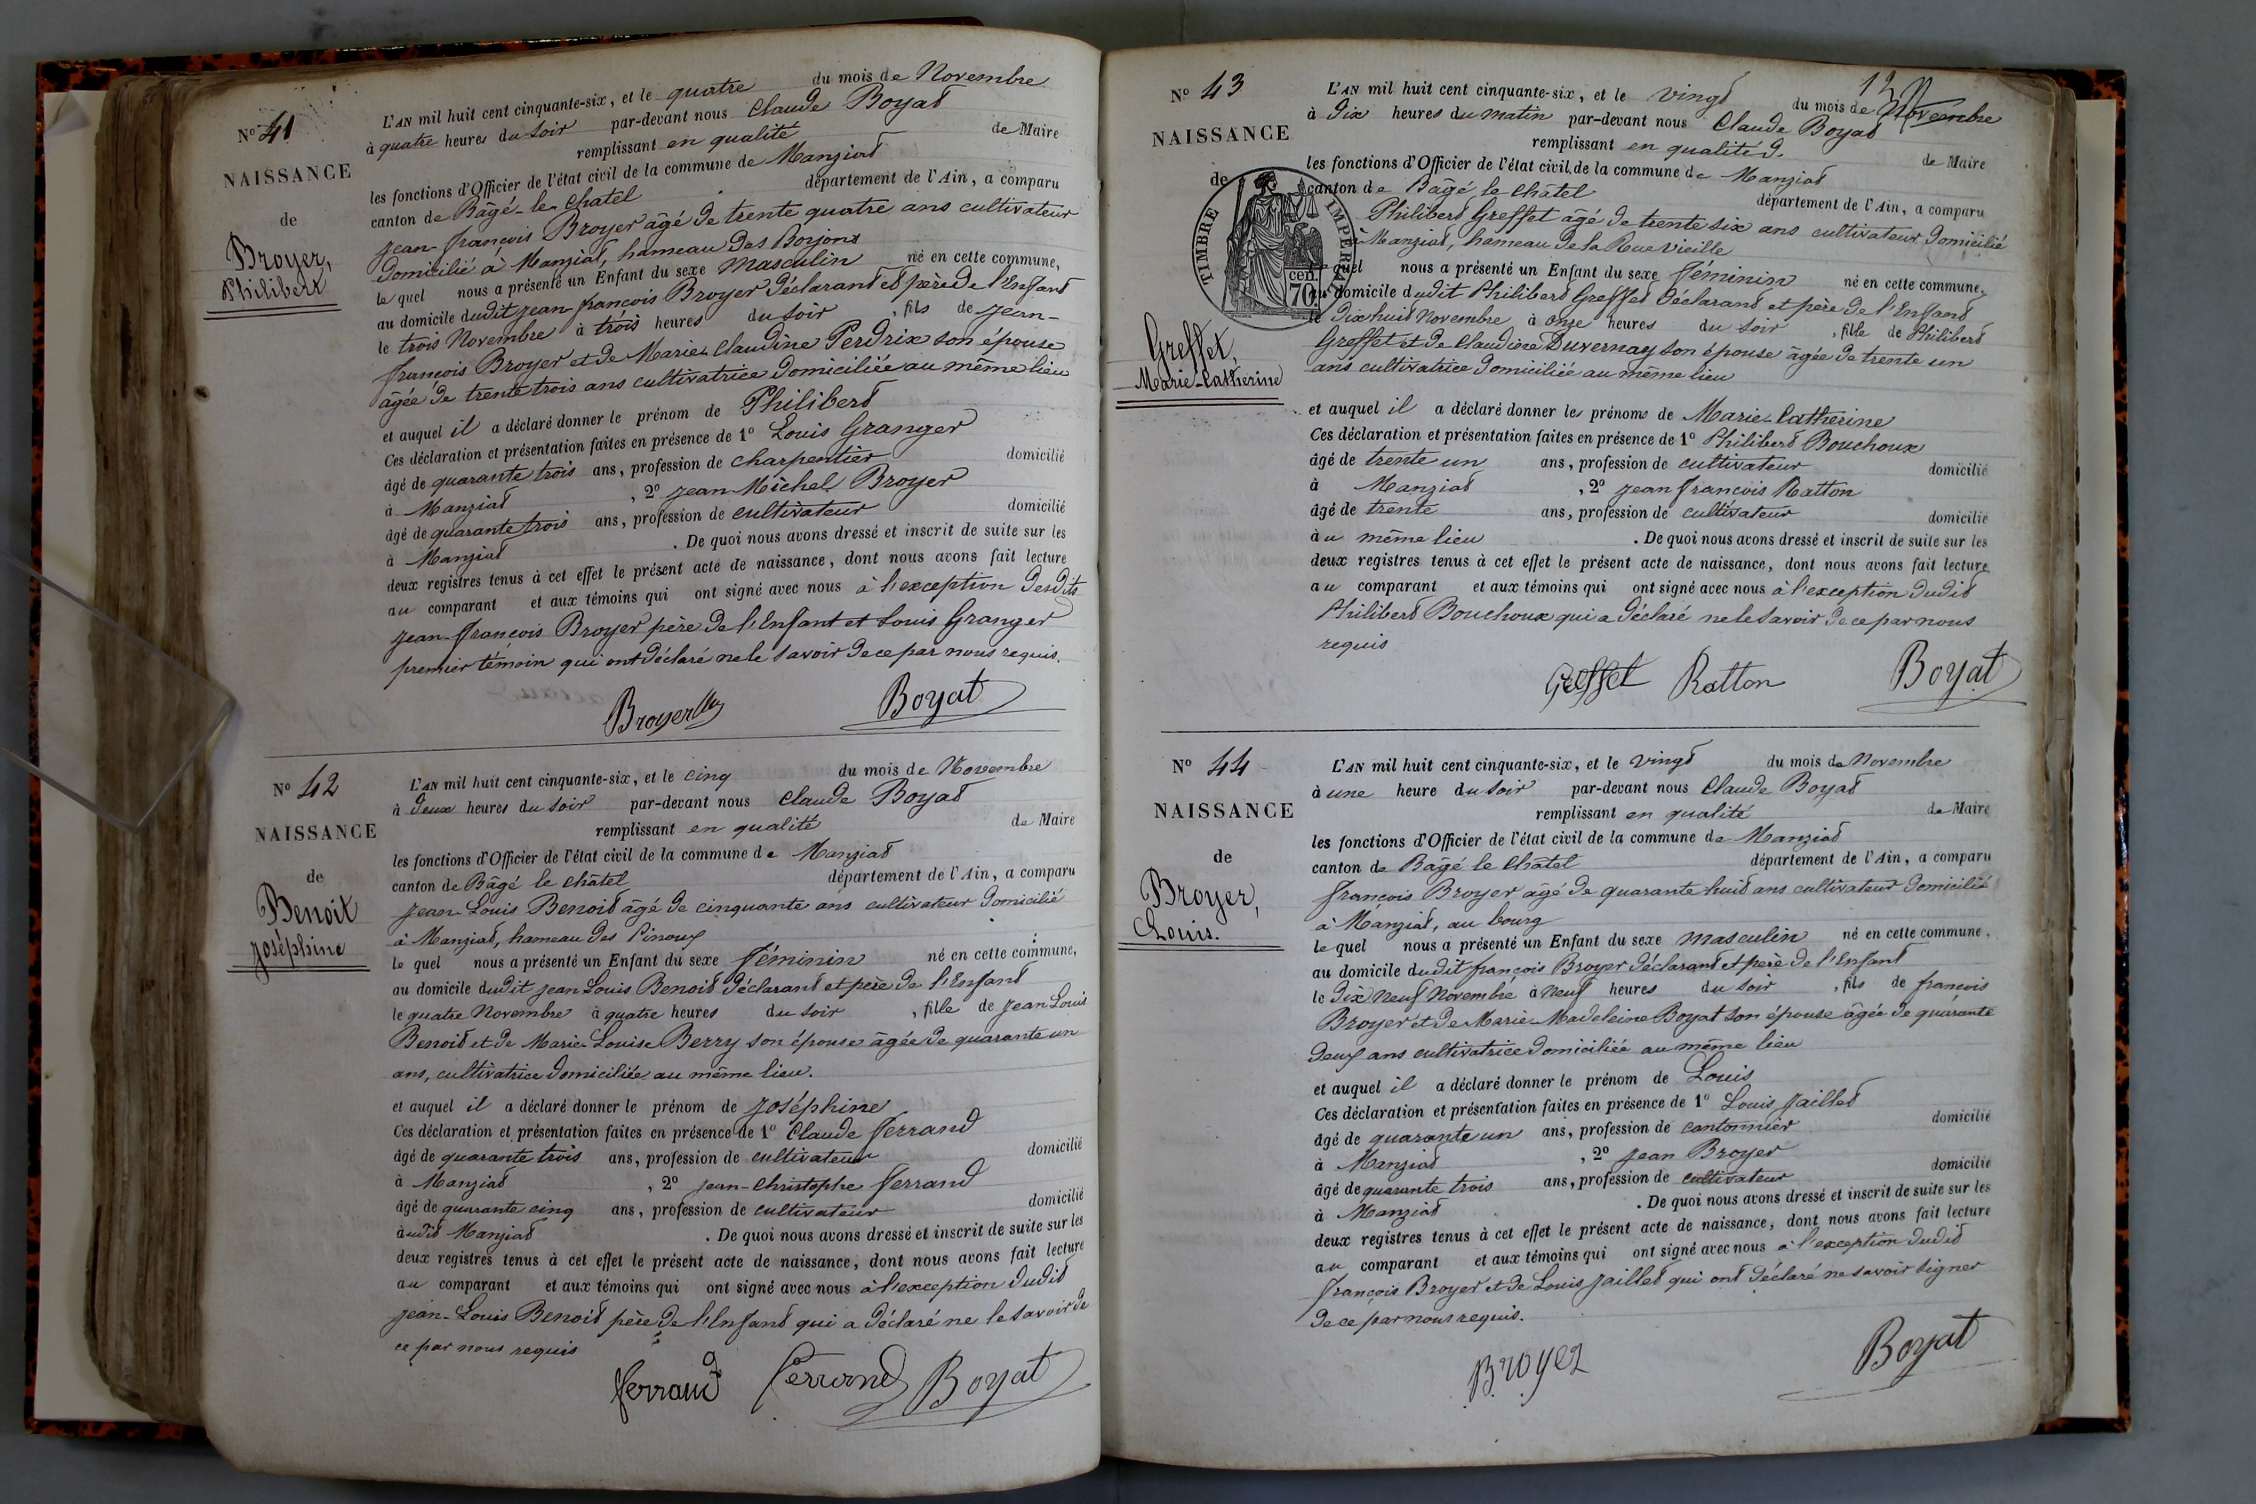 Nº 41
NAISSANCE
de
Broyer,
Philibert
L'AN mil huit cent cinquante-six, et le quatre du mois de Novembre
à quatre heures du soir par-devant nous Claude Boyat
remplissant en qualité de Maire
les fonctions d'Officier de l'état civil de la commune de Manziat
canton de Bâgé-le-Chatel département de l'Ain, a comparu
jean-françois Broyer âgé de trente quatre ans cultivateur
domicilié à Manziat, hameau des Borjons
le quel nous a présenté un Enfant du sexe masculin né en cette commune,
au domicile dudit jean-françois Broyer déclarant et père de l'Enfant
le trois Novembre à trois heures du soir, fils de jean-
françois Broyer et de Marie-Claudine Perdrix son épouse
âgée de trente trois ans cultivatrice domiciliée au même lieu
et auquel il a déclaré donner le prénom de Philibert
Ces déclaration et présentation faites en présence de 1º Louis Granger
âgé de quarante trois ans, profession de charpentier domicilié
à Manziat, 2º jean-Michel Broyer
âgé de quarante trois ans, profession de cultivateur domicilié
à Manziat . De quoi nous avons dressé et inscrit de suite sur les
deux registres tenus à cet effet le présent acte de naissance, dont nous avons fait lecture
au comparant et aux témoins qui ont signé avec nous à l'exception desdits
jean-françois Broyer père de l'Enfant et Louis Granger
premier témoin qui ont déclaré ne le savoir de ce par nous requis.
Broyer Boyat
Nº 42
NAISSANCE
de
Benoit
joséphine
L'AN mil huit cent cinquante-six, et le cinq du mois de Novembre
à deux heures du soir par-devant nous Claude Boyat
remplissant en qualité de Maire
les fonctions d'Officier de l'état civil de la commune de Manziat
canton de Bâgé le Châtel département de l'Ain, a comparu
jean-Louis Benoit âgé de cinquante ans cultivateur domicilié
à Manziat, hameau des Pinoux
le quel nous a présenté un Enfant du sexe féminin né en cette commune,
au domicile dudit jean Louis Benoit déclarant et père de l'Enfant
le quatre Novembre à quatre heures du soir, fille de jean Louis
Benoit et de Marie-Louise Berry son épouse âgée de quarante un
ans, cultivatrice domiciliée au même lieu.
et auquel il a déclaré donner le prénom de joséphine
Ces déclaration et présentation faites en présence de 1º Claude ferrand
âgé de quarante trois ans, profession de cultivateur domicilié
à Manziat, 2º jean-Christophe ferrand
âgé de quarante cinq ans, profession de cultivateur domicilié
audit Manziat . De quoi nous avons dressé et inscrit de suite sur les
deux registres tenus à cet effet le présent acte de naissance, dont nous avons fait lecture
au comparant et aux témoins qui ont signé avec nous à l'exception dudit
jean-Louis Benoit père de l'Enfant qui a déclaré ne le savoir de
ce par nous requis
ferrand ferrand Boyat
12
Nº 43
NAISSANCE
de
TIMBRE IMPERIAL
70 cen.
Greffet,
Marie-Catherine
L'AN mil huit cent cinquante-six, et le vingt du mois de Novembre
à dix heures du matin par-devant nous Claude Boyat
remplissant en qualité d. de Maire
les fonctions d'Officier de l'état civil de la commune de Manziat
canton de Bâgé le Châtel département de l'Ain, a comparu
Philibert Greffet âgé de trente six ans cultivateur domicilié
à Manziat, hameau de la Rue Vieille
le quel nous a présenté un Enfant du sexe féminin né en cette commune,
au domicile dudit Philibert Greffet déclarant et père de l'Enfant
le dix huit Novembre à onze heures du soir, fille de Philibert
Greffet et de Claudine Duvernay son épouse âgée de trente un
ans cultivatrice domiciliée au même lieu
et auquel il a déclaré donner les prénoms de Marie-Catherine
Ces déclaration et présentation faites en présence de 1º Philibert Bouchoux
âgé de trente un ans, profession de cultivateur domicilié
à Manziat, 2º jean françois Ratton
âgé de trente ans, profession de cultivateur domicilié
au même lieu . De quoi nous avons dressé et inscrit de suite sur les
deux registres tenus à cet effet le présent acte de naissance, dont nous avons fait lecture
au comparant et aux témoins qui ont signé avec nous à l'exception dudit
Philibert Bouchoux qui a déclaré ne le savoir de ce par nous
requis
Greffet Ratton Boyat
Nº 44
NAISSANCE
de
Broyer,
Louis.
L'AN mil huit cent cinquante-six, et le vingt du mois de Novembre
à une heure du soir par-devant nous Claude Boyat
remplissant en qualité de Maire
les fonctions d'Officier de l'état civil de la commune de Manziat
canton de Bâgé le Châtel département de l'Ain, a comparu
françois Broyer âgé de quarante huit ans cultivateur domicilié
à Manziat, au bourg
le quel nous a présenté un Enfant du sexe masculin né en cette commune,
au domicile dudit françois Broyer déclarant et père de l'Enfant
le dix neuf Novembre à neuf heures du soir, fils de françois
Broyer et de Marie-Madeleine Boyat son épouse âgée de quarante
deux ans cultivatrice domiciliée au même lieu
et auquel il a déclaré donner le prénom de Louis
Ces déclaration et présentation faites en présence de 1º Louis jaillet
âgé de quarante un ans, profession de cantonnier domicilié
à Manziat, 2º jean Broyer
âgé de quarante trois ans, profession de cultivateur domicilié
à Manziat . De quoi nous avons dressé et inscrit de suite sur les
deux registres tenus à cet effet le présent acte de naissance, dont nous avons fait lecture
au comparant et aux témoins qui ont signé avec nous à l'exception dudit
françois Broyer et de Louis jaillet qui ont déclaré ne savoir signer
de ce par nous requis.
Broyer Boyat